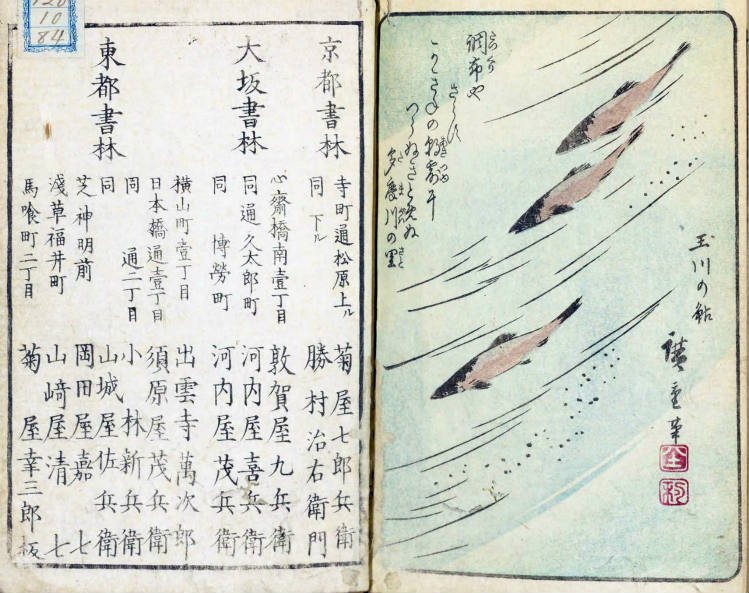 玉川の鮎
廣重筆
調布や
さらす
かきねの朝露乎
つらぬきとめぬ
多麻川の里
京都書林
寺町通松原上ル 菊屋七郎兵衛
同 下ル 勝村治右衛門
大坂書林
心齋橋南壹丁目 敦賀屋九兵衛
同通久太郎町 河内屋喜兵衛
同 博勞町 河内屋茂兵衛
東都書林
横山町壹丁目 出雲寺萬次郎
日本橋通壹丁目 須原屋茂兵衛
同 通二丁目 小林新兵衛
同 山城屋佐兵衛
芝神明前 岡田屋嘉七
淺草福井町 山﨑屋清七
馬喰町二丁目 菊屋幸三郎板
120
10
84